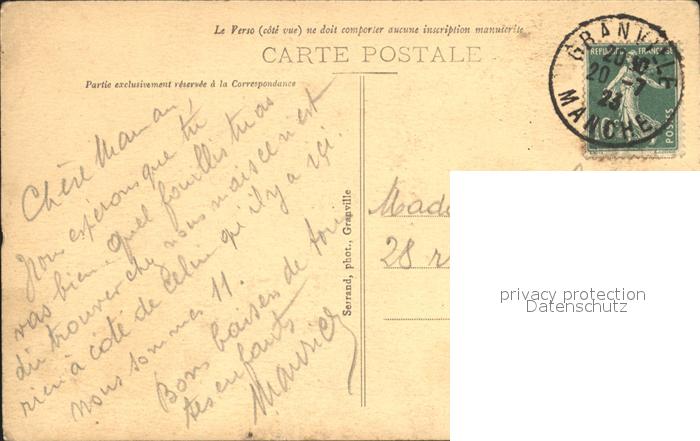 Le Verso (côté vue) ne doit comporter aucune inscription manuscrite
CARTE POSTALE
Partie exclusivement réservée à la Correspondance
Chère Maman,
Nous espérons que tu
vas bien. quel fouillis tu as
du trouver chez nous mais ce n'est
rien à coté de celui qu'il y a içi.
nous sommes 11.
Bons baisers de tous
tes enfants
Maurice
Serrand, phot., Granville
GRANVILLE
20
20 -7
23
MANCHE
REPUBLIQUE FRANÇAISE
POSTES
Mada
28 r
privacy protection
Datenschutz